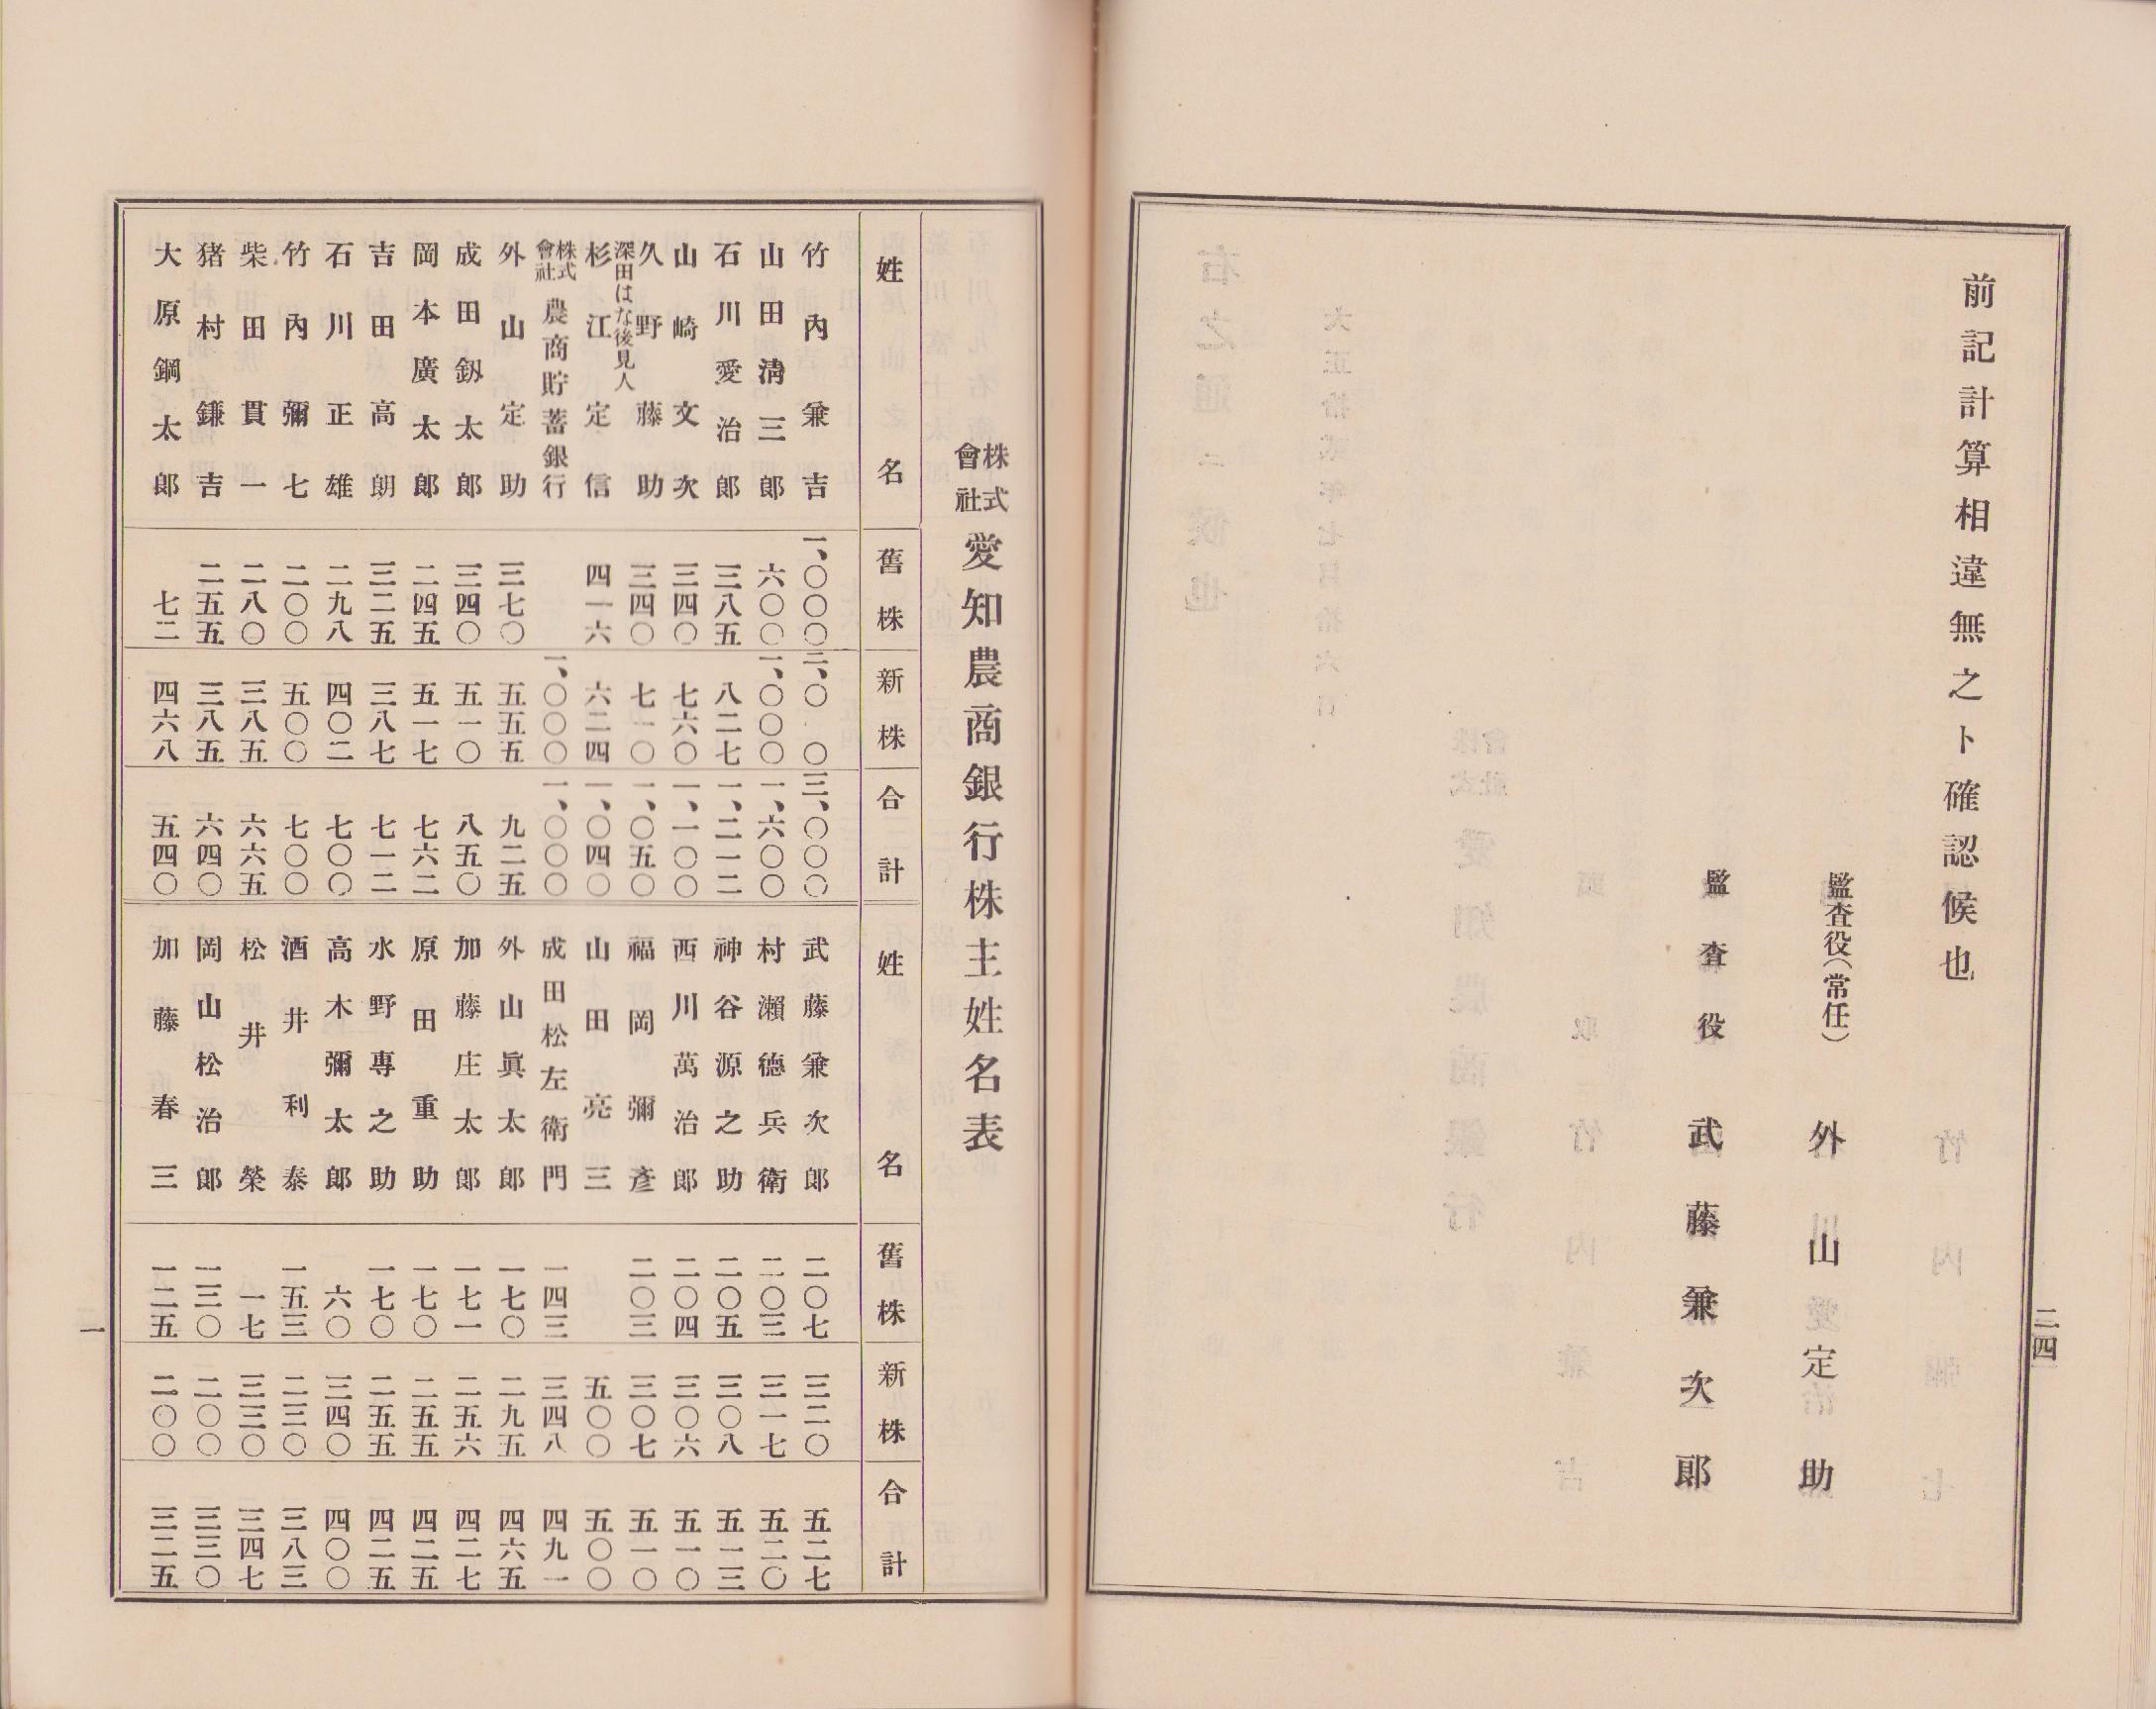 前記計算相違無之ト確認候也
監査役(常任) 外山定助
監査役 武藤兼次郎
二四
株式會社 愛知農商銀行株主姓名表
姓名 舊株 新株 合計 姓名 舊株 新株 合計
竹內兼吉 一、〇〇〇 二、〇 〇 三、〇〇〇 武藤兼次郎 二〇七 三二〇 五二七
山田淸三郎 六〇〇 一、〇〇〇 一、六〇〇 村瀨德兵衛 二〇三 三一七 五二〇
石川愛治郎 三八五 八二七 一、二一二 神谷源之助 二〇五 三〇八 五一三
山崎文次 三四〇 七六〇 一、一〇〇 西川萬治郎 二〇四 三〇六 五一〇
久野藤助 三四〇 七一〇 一、〇五〇 福岡彌彥 二〇三 三〇七 五一〇
深田はな後見人 杉江定信 四一六 六二四 一、〇四〇 山田亮三 五〇〇 五〇〇
株式會社 農商貯蓄銀行 一、〇〇〇 一、〇〇〇 成田松左衛門 一四三 三四八 四九一
外山定助 三七〇 五五五 九二五 外山眞太郎 一七〇 二九五 四六五
成田釼太郎 三四〇 五一〇 八五〇 加藤庄太郎 一七一 二五六 四二七
岡本廣太郎 二四五 五一七 七六二 原田重助 一七〇 二五五 四二五
吉田高朗 三二五 三八七 七一二 水野專之助 一七〇 二五五 四二五
石川正雄 二九八 四〇二 七〇〇 高木彌太郎 六〇 三四〇 四〇〇
竹內彌七 二〇〇 五〇〇 七〇〇 酒井利泰 一五三 二三〇 三八三
柴田貫一 二八〇 三八五 六六五 松井榮 一七 三三〇 三四七
猪村鎌吉 二五五 三八五 六四〇 岡山松治郎 一三〇 二〇〇 三三〇
大原鋼太郎 七二 四六八 五四〇 加藤春三 一二五 二〇〇 三二五
一